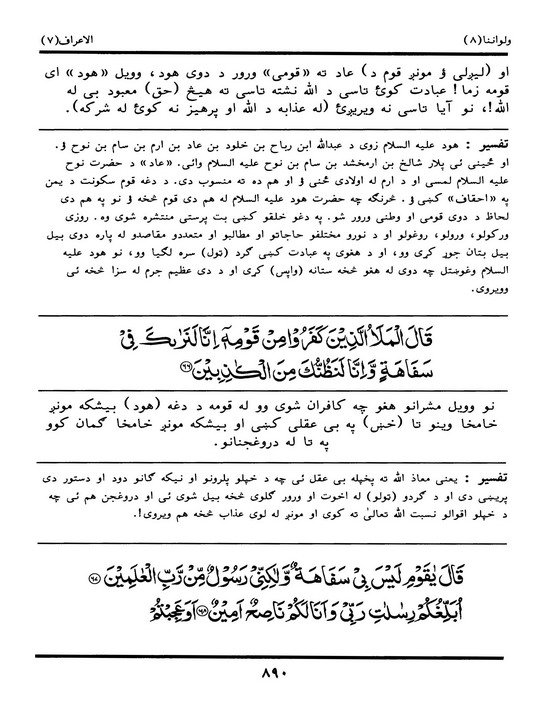 ولواننا(۸) الاعراف(۷)
او (لیږلی ؤ مونږ قوم د) عاد ته «قومی» ورور د دوی هود، وویل «هود» ای
قومه زما! عبادت کوئ تاسی د الله نشته تاسی ته هیڅ (حق) معبود بی له
الله!، نو آیا تاسی نه ویریږئ (له عذابه د الله او پرهیز نه کوئ له شرکه).
تفسیر : هود علیه السلام زوی د عبدالله ابن رباح بن خلود بن عاد بن ارم بن سام بن نوح ؤ.
او ځینی ئی پلار شالخ بن ارمخشد بن سام بن نوح علیه السلام وائی. «عاد» د حضرت نوح
علیه السلام لمسی او د ارم له اولادی ځنی ؤ او هم ده ته منسوب دی. د دغه قوم سکونت د یمن
په «احقاف» کښی ؤ. څرنگه چه حضرت هود علیه السلام له هم دی قوم څخه ؤ نو په هم دی
لحاظ د دوی قومی او وطنی ورور شو. په دغو خلقو کښی بت پرستی منتشره شوی وه. روزی
ورکولو، ورولو، روغولو او د نورو مختلفو حاجاتو او مطالبو او متعددو مقاصدو له پاره دوی بیل
بیل بتان جوړ کړی وو، او د هغوی په عبادت کښی گرد (ټول) سره لگیا وو، نو هود علیه
السلام وغوښتل چه دوی له هغو څخه ستانه (واپس) کړی او د دی عظیم جرم له سزا څخه ئی
وویروی.
قَالَ الْمَلَأُ الَّذِيْنَ كَفَرُوْا مِنْ قَوْمِهٖٓ اِنَّا لَنَرٰىكَ فِيْ
سَفَاهَةٍ وَّاِنَّا لَنَظُنُّكَ مِنَ الْكٰذِبِيْنَ ﴿۶۶﴾
نو وویل مشرانو هغو چه کافران شوی وو له قومه د دغه (هود) بیشکه مونږ
خامخا وینو تا (خښ) په بی عقلی کښی او بیشکه مونږ خامخا گمان کوو
په تا له دروغجنانو.
تفسیر : یعنی معاذ الله ته پخپله بی عقل ئی چه د خپلو پلرونو او نیکه گانو دود او دستور دی
پریښی دی او د گردو (ټولو) له اخوت او ورور گلوی څخه بیل شوی ئی او دروغجن هم ئی چه
د خپلو اقوالو نسبت الله تعالیٰ ته کوی او مونږ له لوی عذاب څخه هم ویروی!.
قَالَ يٰقَوْمِ لَيْسَ بِيْ سَفَاهَةٌ وَّلٰكِنِّيْ رَسُوْلٌ مِّنْ رَّبِّ الْعٰلَمِيْنَ ﴿۶۷﴾
اُبَلِّغُكُمْ رِسٰلٰتِ رَبِّيْ وَاَنَا لَكُمْ نَاصِحٌ اَمِيْنٌ ﴿۶۸﴾ اَوَعَجِبْتُمْ
۸۹۰